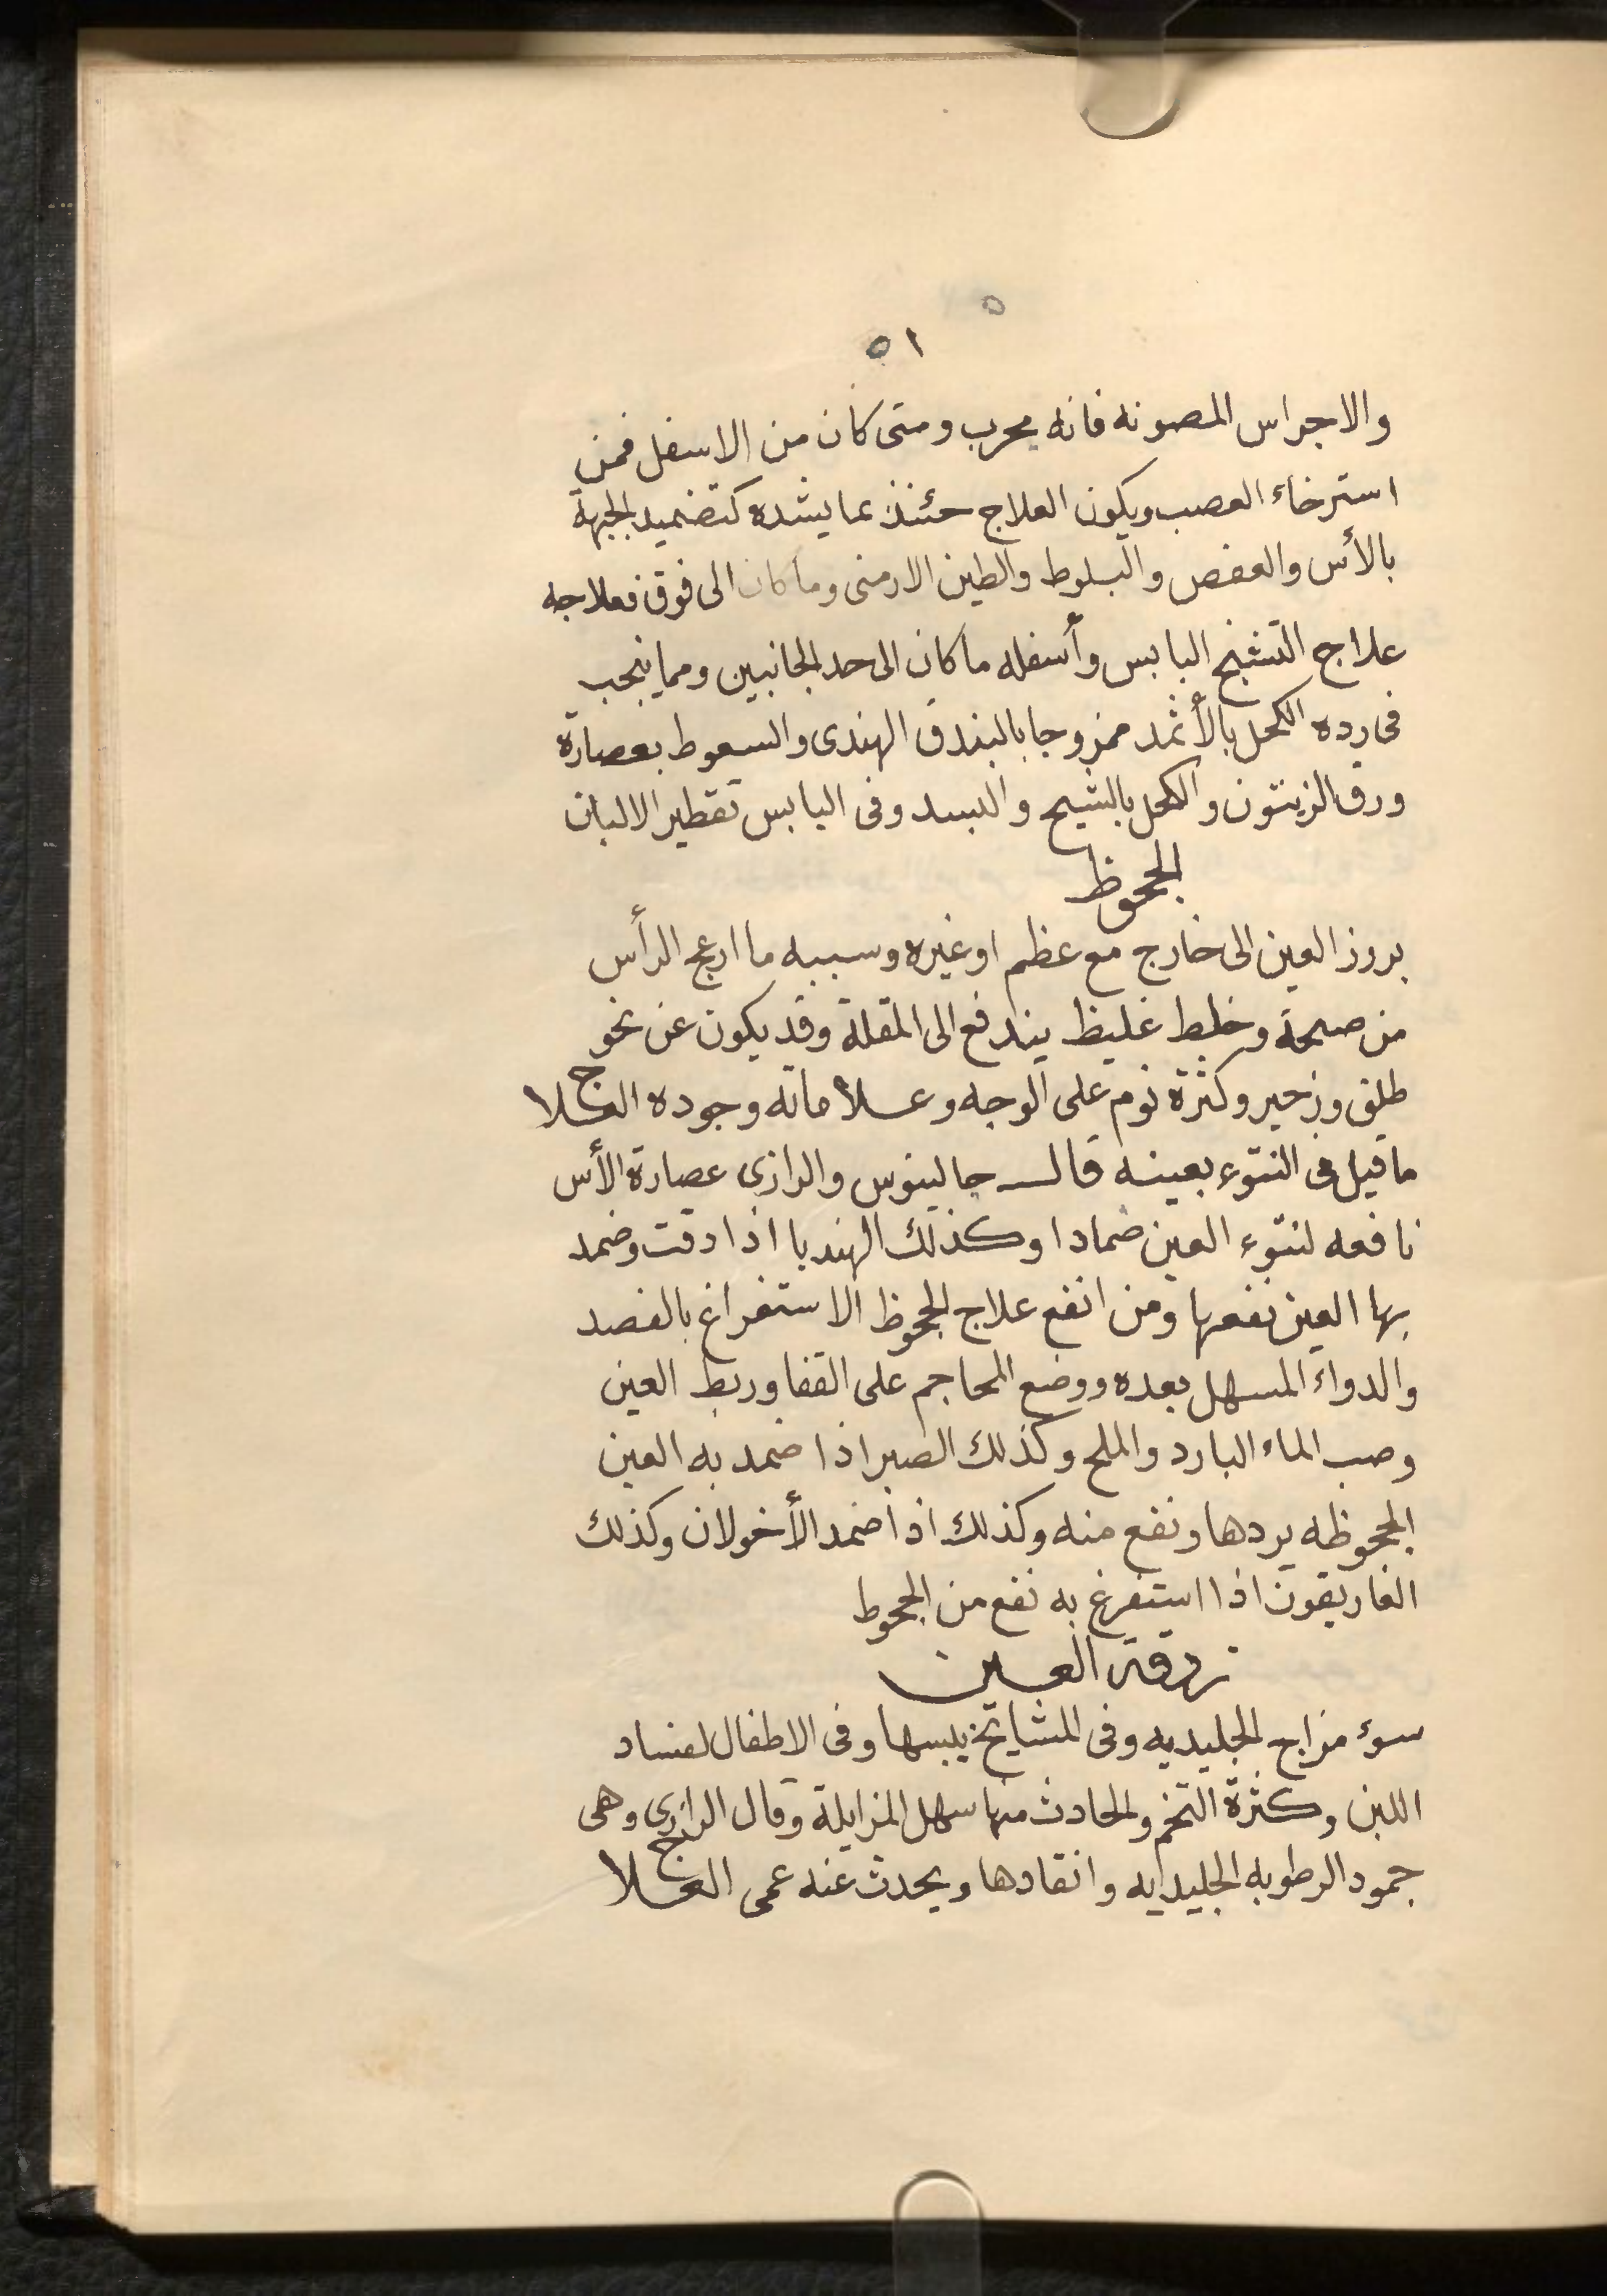 ٥
٥١
والاجراس المصونه فانه مجرب ومتى كان من الاسفل فمن
استرخاء العصب ويكون العلاج حئنذ بما يشده كتضميد الجبهة
بالأس والعفص والبلوط والطين الارمنى وما كان الى فوق فعلاجه
علاج التشنج اليابس وأسفله ما كان الى حد الجانبين ومما ينجب
فى رده الكحل بالأثمد ممزوجا بالبندق الهندى والسعوط بعصارة
ورق الزيتون والكحل بالشيح والبسد وفى اليابس تقطير الالبان
الجحوظ
بروز العين الى خارج مع عظم او غيره وسببه ما ازعج الرأس
من صيحة وخلط غليظ يندفع الى المقلة وقد يكون عن نحو
طلق وزحير وكثرة نوم على الوجه وعلاماته وجوده العلاج
ما قيل فى النتوء بعينه قال جالينوس والرازى عصارة الأس
نافعه لنتوء العين ضمادا وكذلك الهندبا اذا دقت وضمد
بها العين نفعها ومن انفع علاج الجحوظ الاستفراغ بالفصد
والدواء المسهل بعده ووضع المحاجم على القفا وربط العين
وصب الماء البارد والملح وكذلك الصبر اذا ضمد به العين
الجحوظه يردها ونفع منه وكذلك اذا ضمد الأخولان وكذلك
الغاريقون اذا استفرغ به نفع من الجحوط
زرقة العين
سوء مزاج الجليديه وفى المشايخ يبسها وفى الاطفال لفساد
اللبن وكثرة التخم والحادث منها سهل المزايلة وقال الرازى وهى
جمود الرطوبه الجليدايه وانقادها ويحدث عنه عمى العلاج